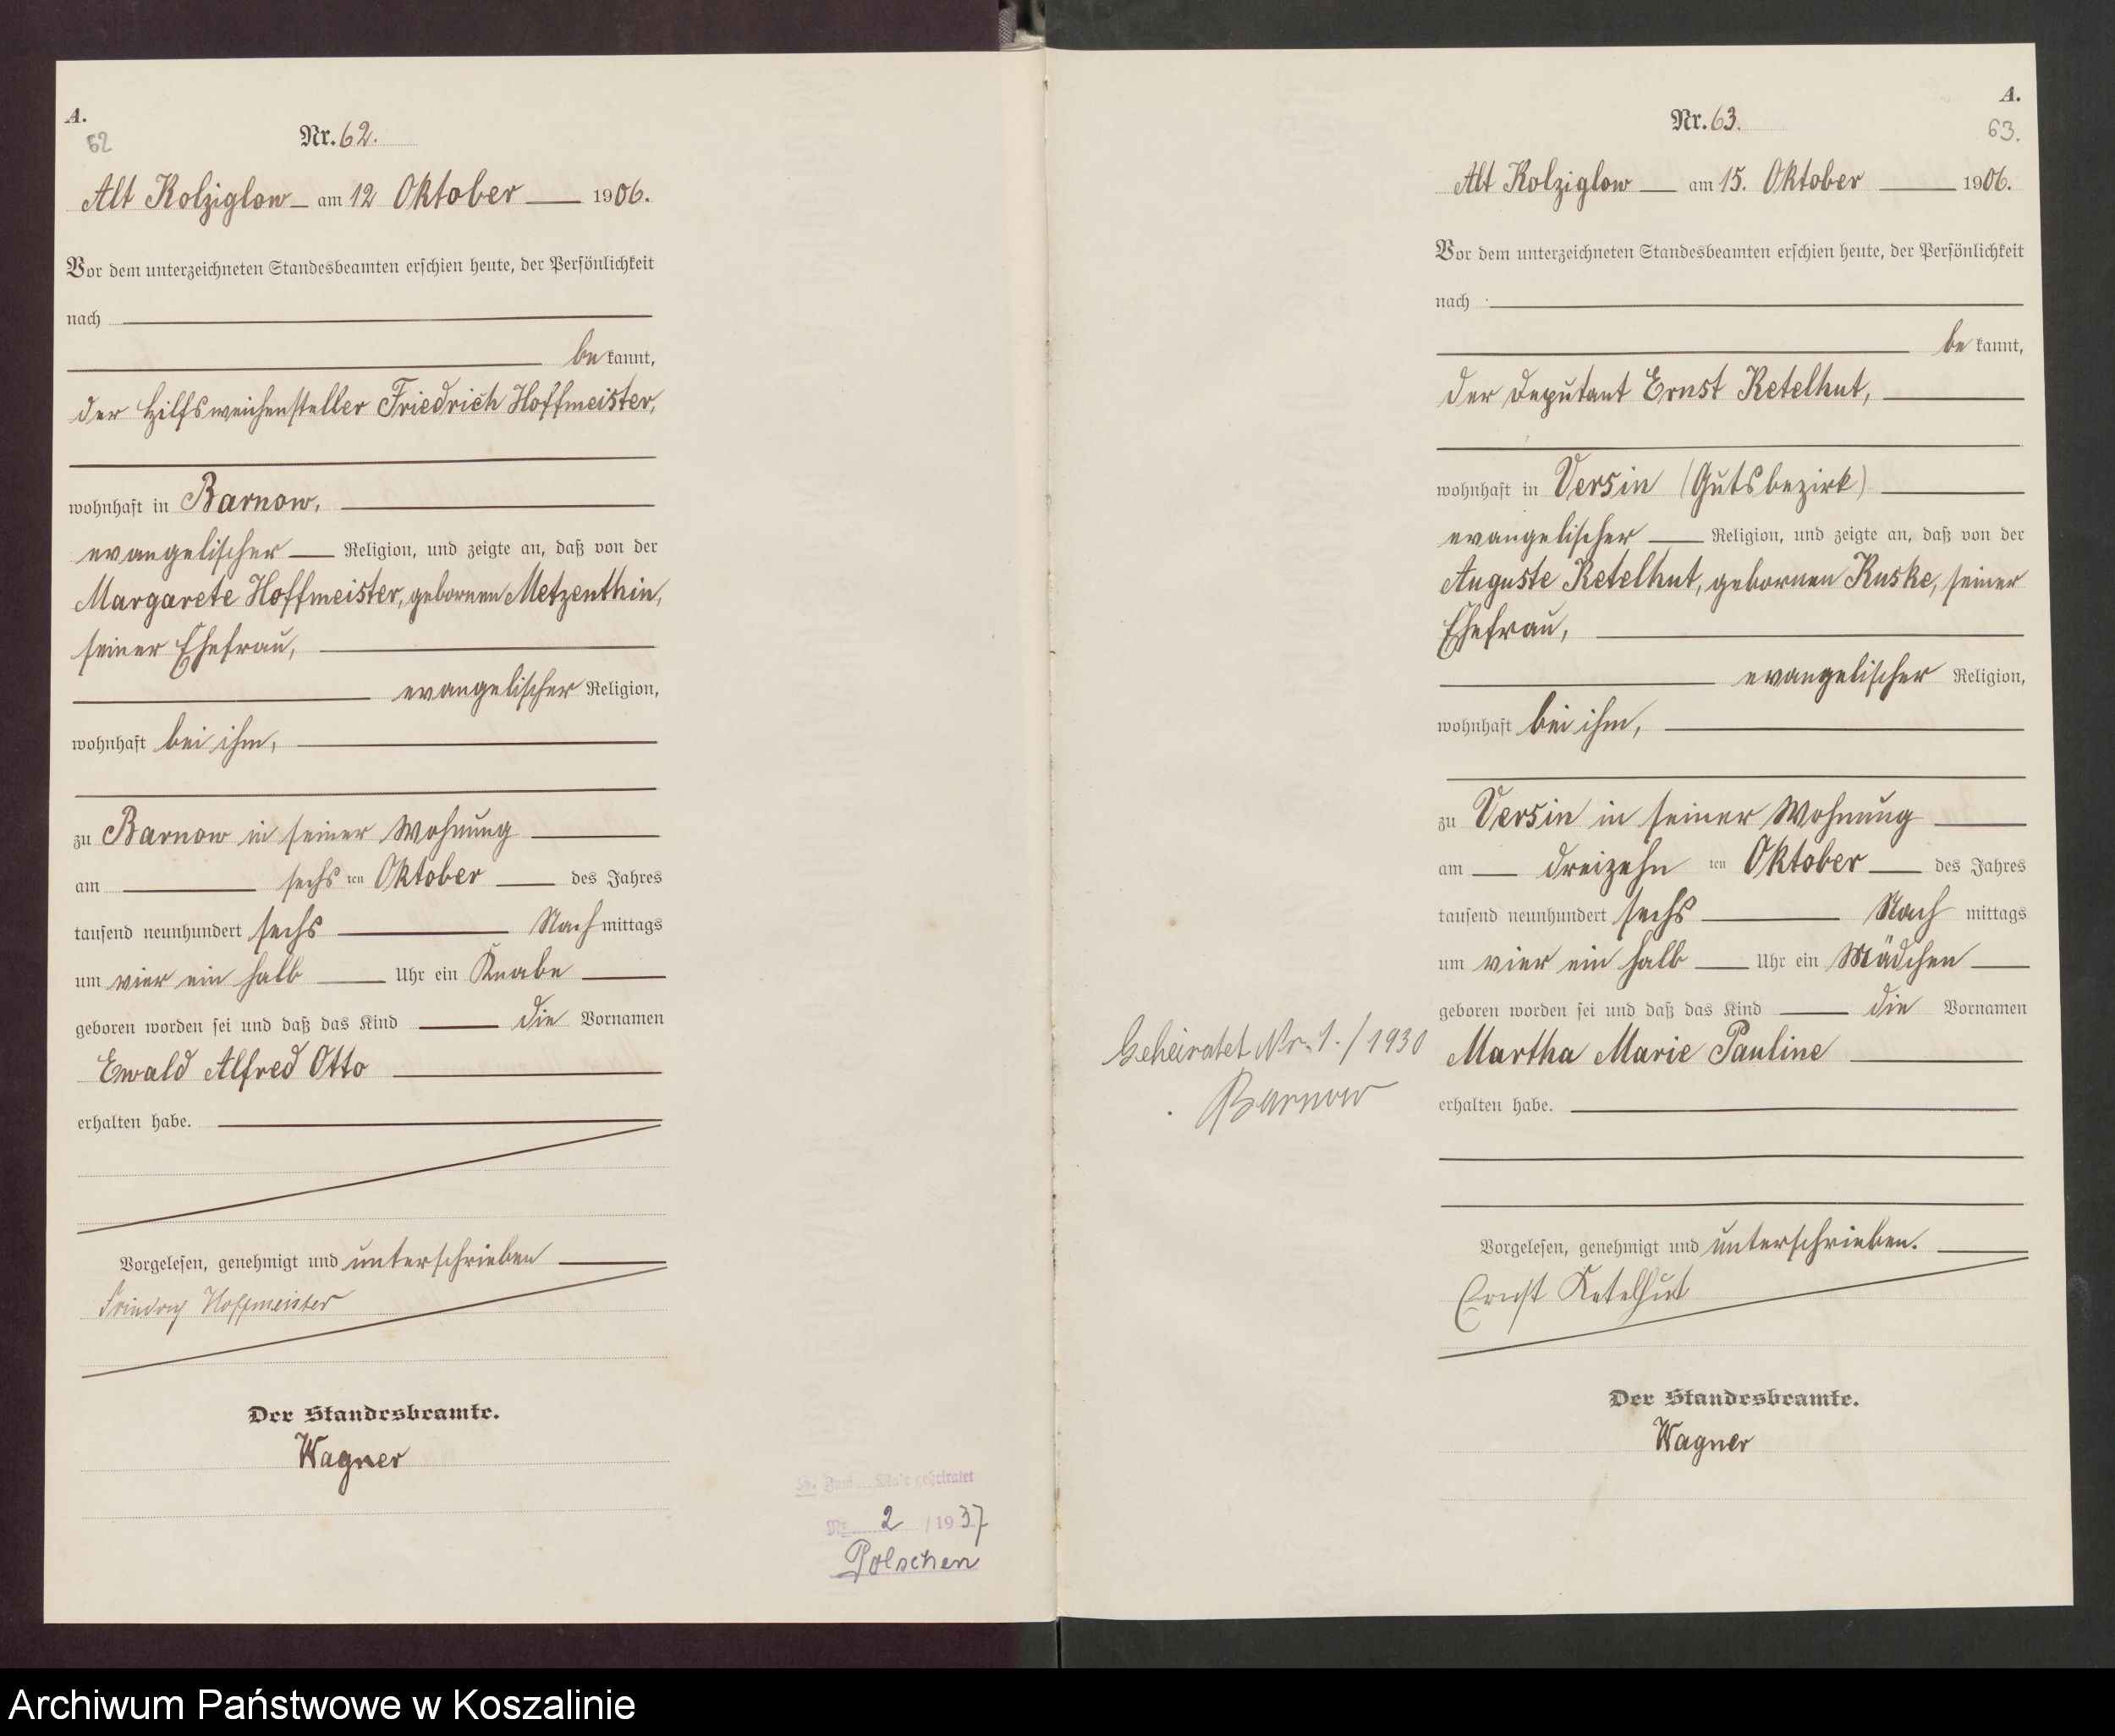 A.
62
Nr. 62.
Alt Kolziglow am 12 Oktober 1906.
Vor dem unterzeichneten Standesbeamten erschien heute, der Persönlichkeit
nach
be kannt,
der Hilfsweichensteller Friedrich Hoffmeister,
wohnhaft in Barnow,
evangelischer Religion, und zeigte an, daß von der
Margarete Hoffmeister, gebornen Metzenthin,
seiner Ehefrau,
evangelischer Religion,
wohnhaft bei ihm,
zu Barnow in seiner Wohnung
am sechs ten Oktober des Jahres
tausend neunhundert sechs Nach mittags
um vier ein halb Uhr ein Knabe
geboren worden sei und daß das Kind die Vornamen
Ewald Alfred Otto
erhalten habe.
Vorgelesen, genehmigt und unterschrieben
Friedrich Hoffmeister
Der Standesbeamte.
Wagner
geheiratet
Nr. 2 /1937
Polschen
A.
63.
Nr. 63.
Alt Kolziglow am 15. Oktober 1906.
Vor dem unterzeichneten Standesbeamten erschien heute, der Persönlichkeit
nach
be kannt,
der Deputant Ernst Ketelhut,
wohnhaft in Versin (Gutsbezirk)
evangelischer Religion, und zeigte an, daß von der
Auguste Ketelhut, gebornen Kuske, seiner
Ehefrau,
evangelischer Religion,
wohnhaft bei ihm,
zu Versin in seiner Wohnung
am dreizehn ten Oktober des Jahres
tausend neunhundert sechs Nach mittags
um vier ein halb Uhr ein Mädchen
geboren worden sei und daß das Kind die Vornamen
Martha Marie Pauline
erhalten habe.
Geheiratet Nr. 1./1930
Barnow
Vorgelesen, genehmigt und unterschrieben.
Ernst Ketelhut
Der Standesbeamte.
Wagner
Archiwum Państwowe w Koszalinie